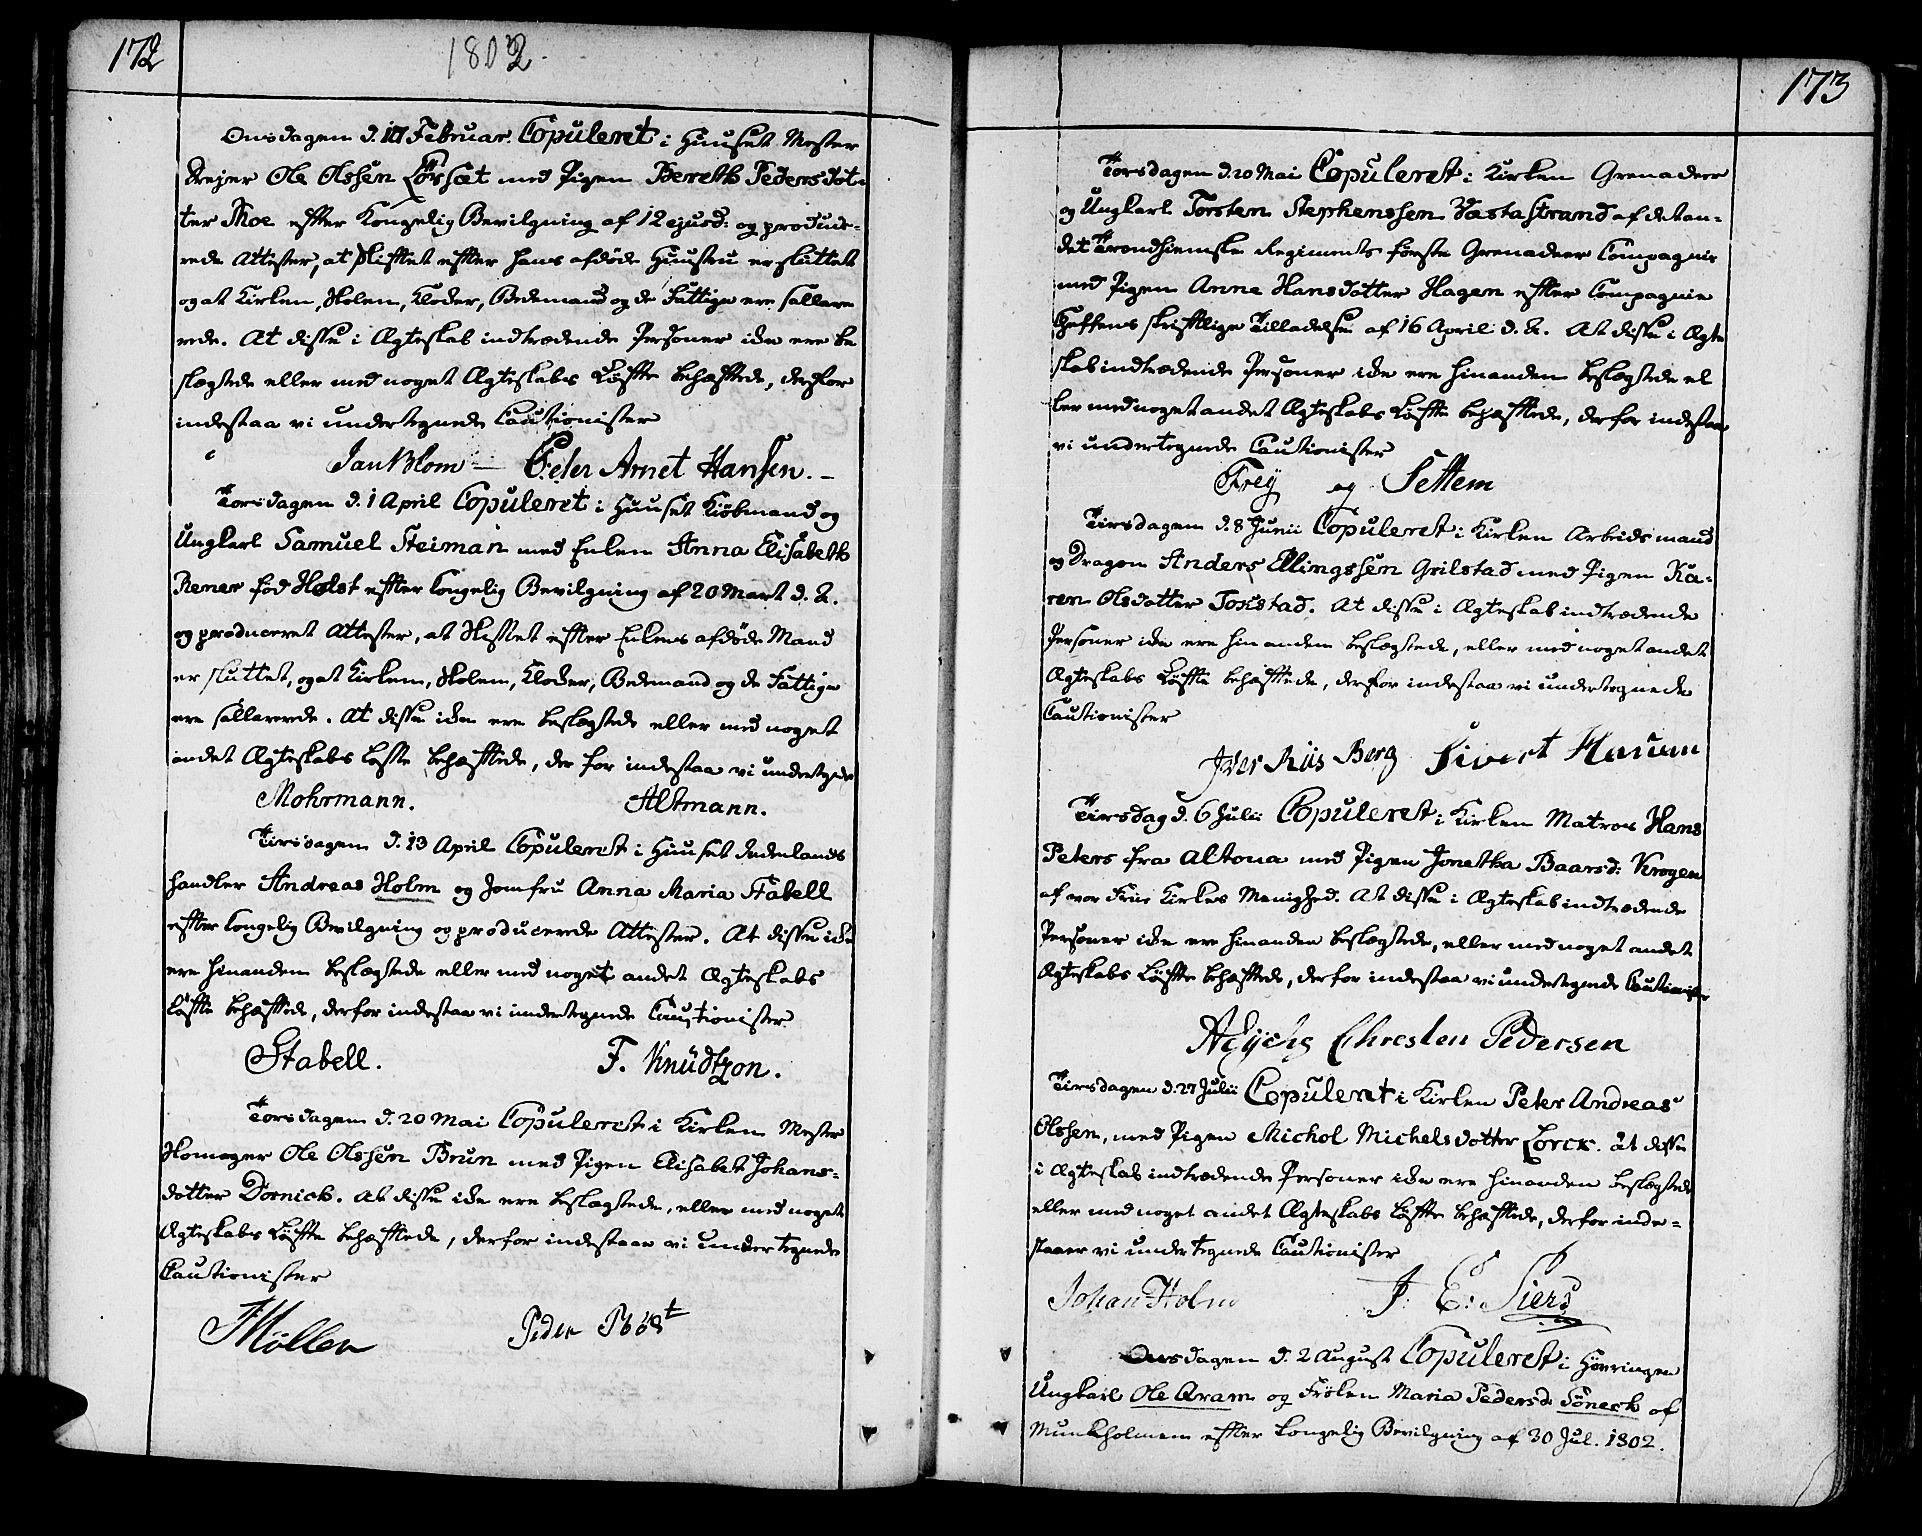 172
1802.
Onsdagen d. 17 Februar. Copuleret i Huuset Mester
Drejer Ole Olssen Lørsæt med Pigen Bereth Pedersdot-
ter Moe efter Kongelig Bevilgning af 12 ejusd: og produce-
rede Attester, at skifttet effter hans afdöde Huustru er sluttet
og at Kirken, Skolen, Kloder, Bedemand og de Fattige ere sallare
rede. At disse i Ægteskab indtrædende Personer ikke ere be
slægtede eller med noget Ægteskabs Løffte behæfftede, derfor
indestaa vi undertegnede Cautionister
Jan Blom — Peter Arnet Hansen. –
Torsdagen d. 1 April Copuleret i Huuset Kiöbmand og
Ungkarl Samuel Steiman med Enken Anna Elisabeth
Rener föd Holst effter kongelig Bevilgning af 20 Mart d. A.
og produceret Attester, at Skiftet effter Enkens afdöde Mand
er sluttet, og at Kirken, Skolen, Kloder, Bedemand og de Fattige
ere sallarerede. At disse ikke ere beslægtede eller med noget
andet Ægteskabs Löfte behæfftede, der for indestaa vi undertegnede
Mohrmann. Altmann.
Tirsdagen d. 13 April Copuleret i Huuset Indenlands
handler Andreas Holm og Jomfru Anna Maria Stabell
effter kongelig Bevilgning og producerede Attester. At disse ikke
ere hinanden beslægtede eller med noget andet Ægteskabs
Löffte behæfftede, derfor indestaa vi undertegnede Cautionister.
Stabell. F. Knüdtzon.
Torsdagen d. 20 Mai Copuleret i Kirken Mester
Skomager Ole Olssen Brun med Pigen Elisabet Johans-
dotter Dornick. At disse ikke ere beslægtede, eller med noget
Ægteskabs Löffte behæfftede, derfor indestaa vi undertegnede
Cautionister
Möller Peder
173
Torsdagen d. 20 Mai Copuleret i Kirken Grenadeer
og Ungkarl Torsten Stephenssen Væstastrand af det an-
det Trondhiemske Regiments förste Grenadeer Compagnie
med Pigen Anne Hansdotter Hagen effter Compagnie
Cheffens skrifftlige Tilladelse af 16 April d. A. At disse i Ægte
skab indtrædende Personer ikke ere hinanden beslægtede el
ler med noget andet Ægteskabs Löffte behæfftede, derfor indestaa
vi undertegnede Cautionister
Frey og Settem
Tirsdagen d. 8 Junii Copuleret i Kirken Arbeidsmand
og Dragon Anders Ellingssen Grilstad med Pigen Ka-
ren Olsdotter Tokstad. At disse i Ægteskab indtrædende
Personer ikke ere hinanden beslægtede, eller med noget andet
Ægteskabs Löffte behæfftede, derfor indestaa vi undertegnede
Cautionister
Iver Riis Berg Sivert
Tirsdag d. 6 Julii Copuleret i Kirken Matros Hans
Peters fra Altona med Pigen Jonetha Baarsd: Krogen
af vor Frue Kirkes Menighed. At disse i Ægteskab indtrædende
Personer ikke ere hinanden beslægtede, eller med noget andet
Ægteskabs Löffte behæfftede, derfor indestaa vi undertegnede Cautionister
Chresten Pedersen
Tirsdagen d. 27 Julii Copuleret i Kirken Peter Andreas
Olssen, med Pigen Michol Michelsdotter Lorck. At disse
i Ægteskab indtrædende Personer ikke ere hinanden beslægtede
eller med noget andet Ægteskabs Löffte behæfftede, derfor inde-
staaer vi undertegnede Cautionister
Johan Holm J: E: Siers
Onsdagen d. 2 August Copuleret i Hövringen
Ungkarl Ole Aram og Fröken Maria Pedersd: Töneck af
Munkholmen effter kongelig Bevilgning af 30 Jul. 1802.